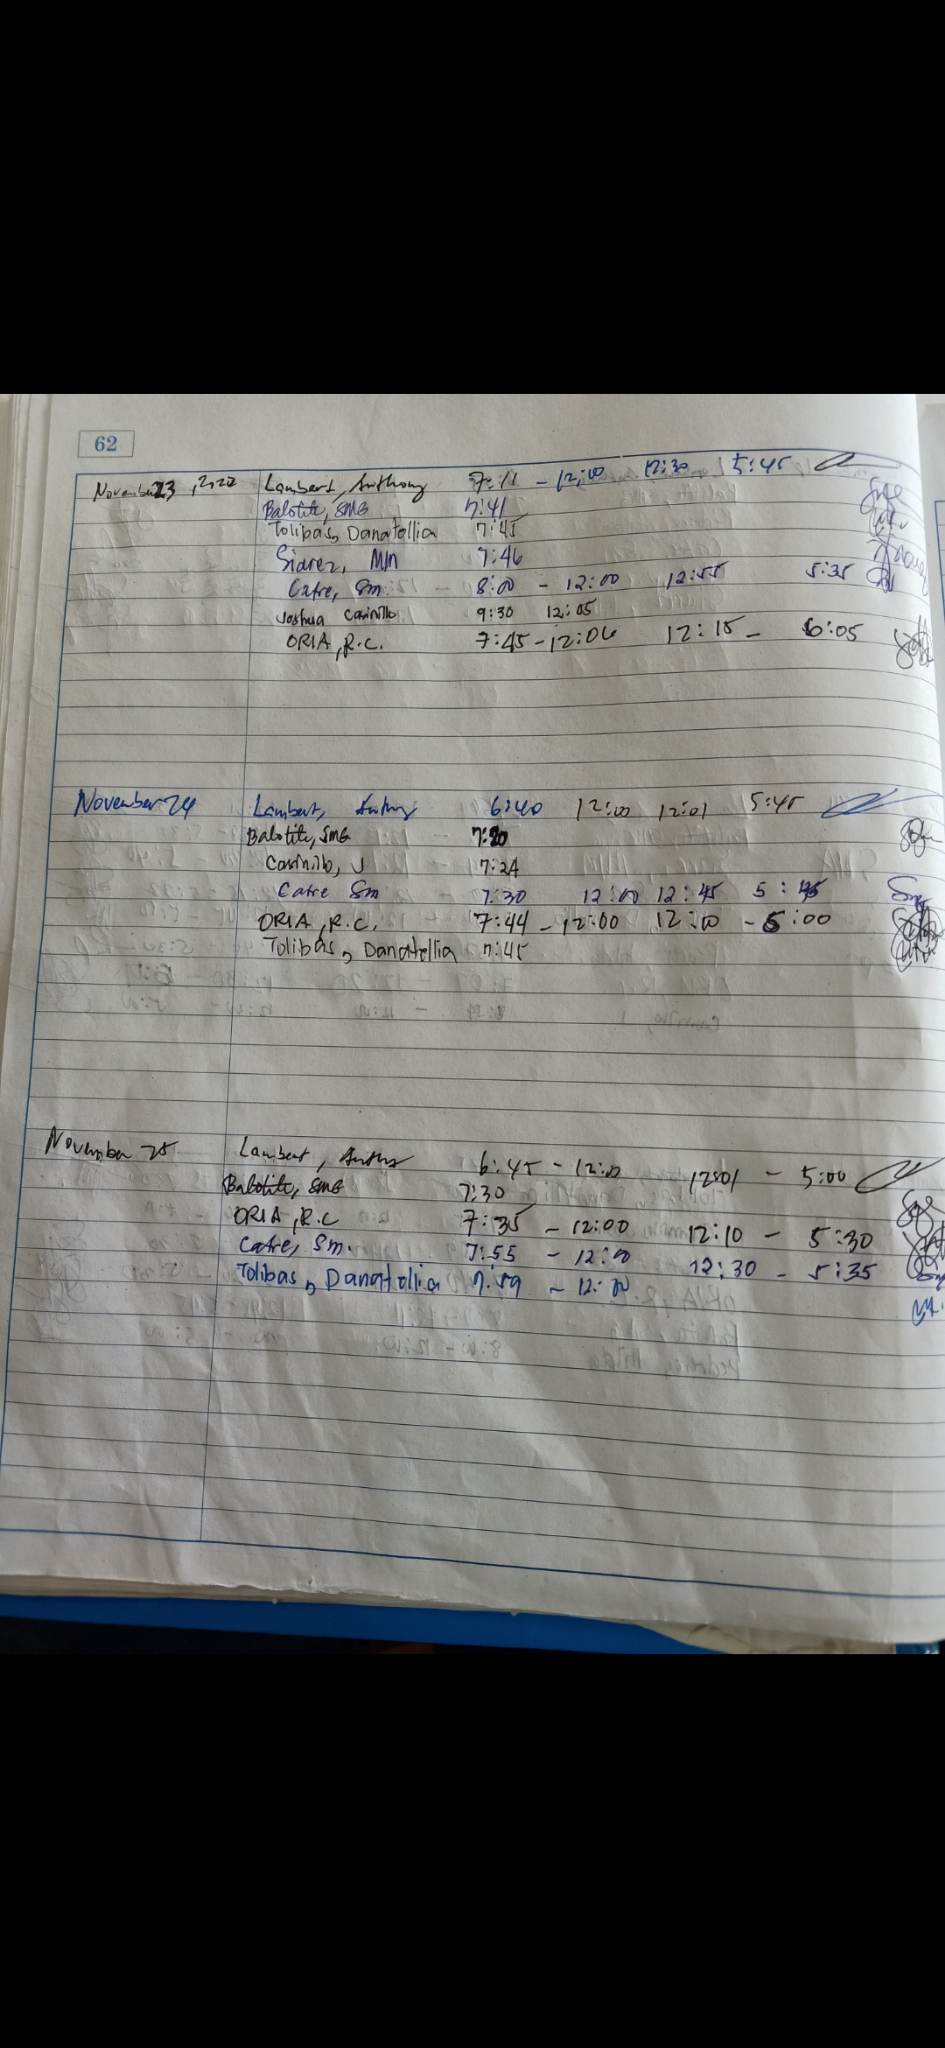 62
November 23, 2022 Lambert, Anthony 7:11 - 12:00 12:30 5:45
Balotite, SMG 7:41
Tolibas, Danatellia 7:45
Siarez, M/n 7:46
Catre, Sm. 8:00 - 12:00 12:55 5:35
Joshua Casinillo 9:30 12:05
ORIA, R.C. 7:45 - 12:06 12:15 - 6:05
November 24 Lambert, 6:40 12:00 12:01 5:45
Balotite, SMG 7:20
Casinillo, J 7:24
Catre Sm 7:30 12:00 12:45 5:45
ORIA, R.C. 7:44 - 12:00 12:10 - 5:00
Tolibas, Danatellia 7:45
November 25 Lambert, 6:45 - 12:00 12:01 - 5:00
Balotite, SMG 7:30
ORIA, R.C 7:35 - 12:00 12:10 - 5:30
Catre, Sm. 7:55 - 12:00 12:30 - 5:35
Tolibas, Danatalia 7:59 - 12:00